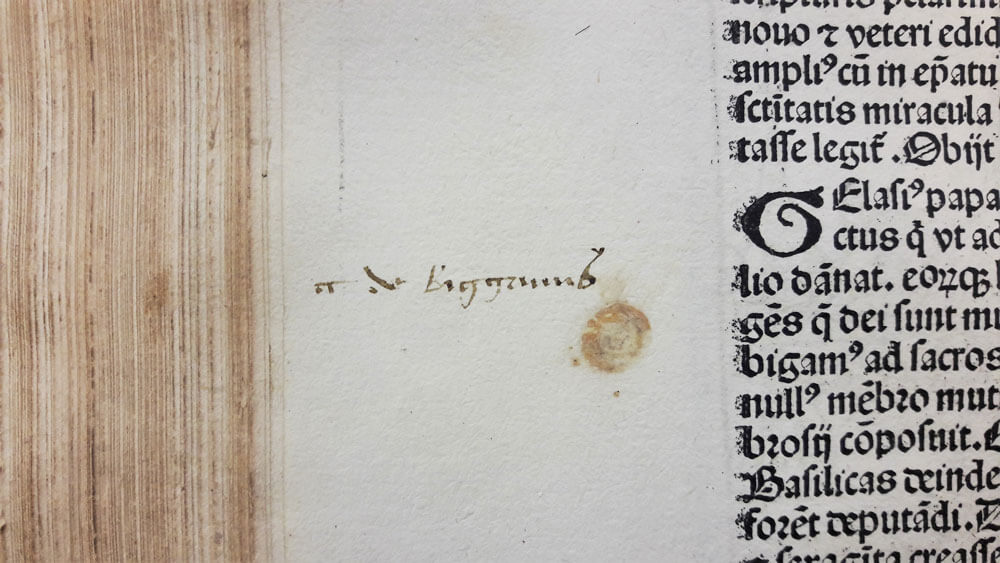 de biggamis
nouo ⁊ veteri edid
ampliꝰ cū in ep̄atu
ſctītatis miracula
taſſe legit̄ . Obijt
GElaſiꝰ papa
ctus q̄ vt ad
lio dānat. eorꝝqꝫ
gēs q̄ dei ſunt mu
bigamꝰ ad ſacros
nullꝰ mēbro mut
broſij cōpoſuit.
Baſilicas deinde
forēt deputādi.
creaſſe